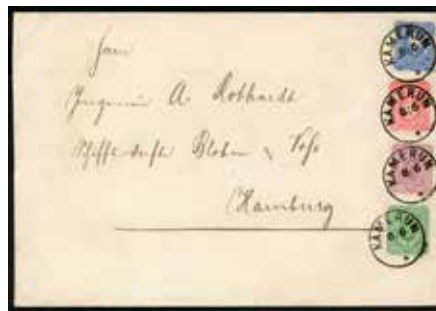 Herrn
Ingenieur A. Rothardt
Schiffswerfte Blohm & Voß
Hamburg
KAMERUN
KAMERUN
KAMERUN
KAMERUN